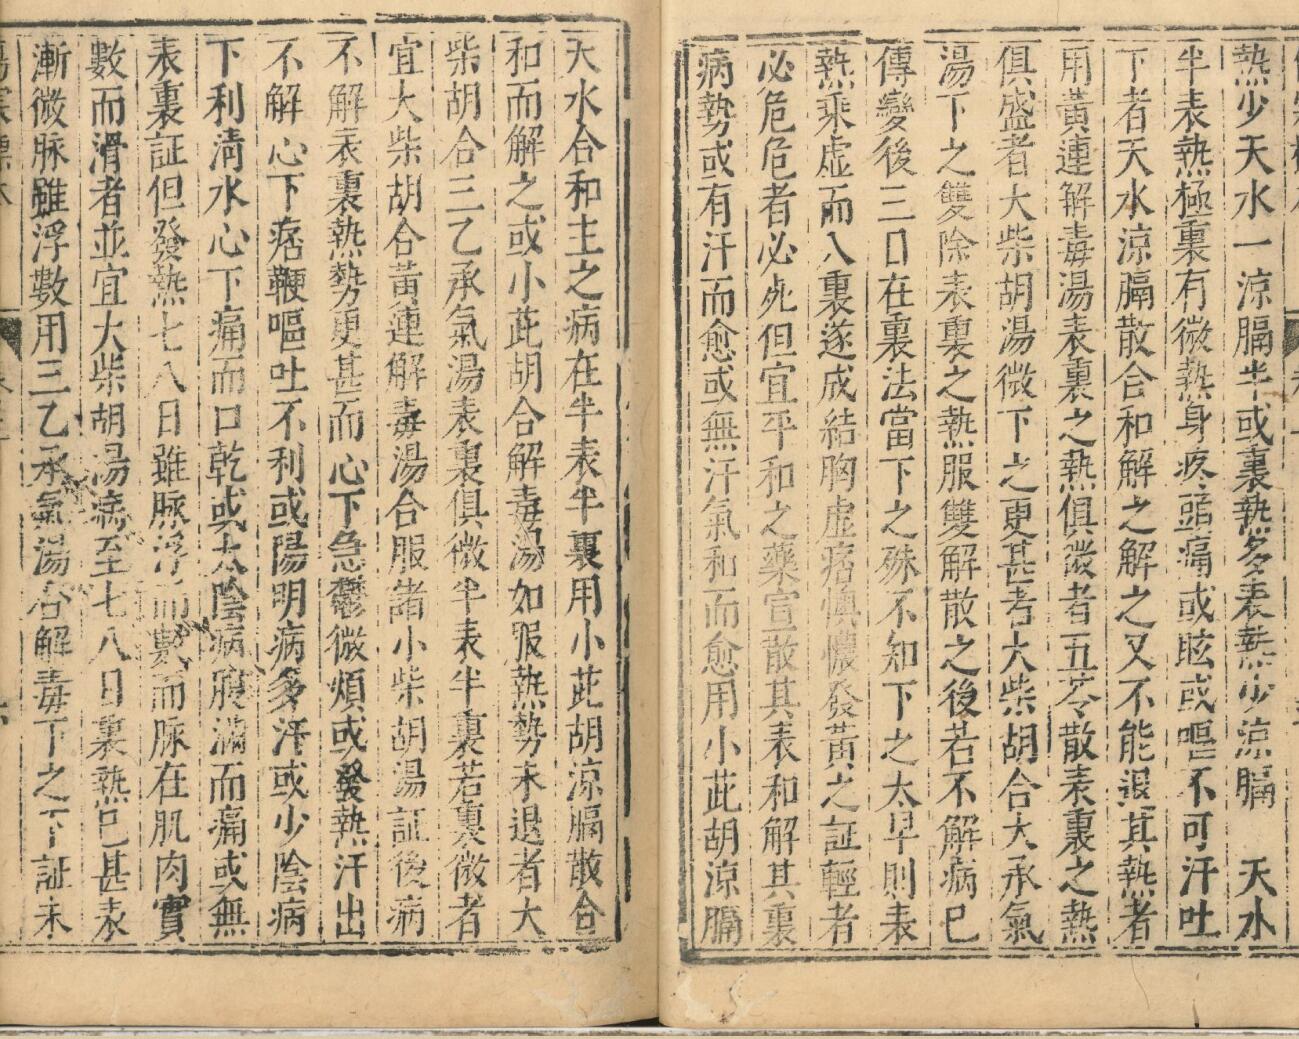 熱少天水一涼膈半或裏熱多表熱少涼膈　天水
半表熱極裏有微熱身疼頭痛或眩或嘔不可汗吐
下者天水涼膈散合和解之解之又不能退其熱者
用黃連解毒湯表裏之熱俱微者五苓散表裏之熱
俱盛者大柴胡湯微下之更甚者大柴胡合大承氣
湯下之雙除表裏之熱服雙解散之後若不解病已
傳變後三日在裏法當下之殊不知下之太早則表
熱乘虛而入裏遂成結胸虛痞懊憹發黃之証輕者
必危危者必死但宜平和之藥宣散其表和解其裏
病勢或有汗而愈或無汗氣和而愈用小茈胡涼膈
天水合和主之病在半表半裏用小茈胡涼膈散合
和而解之或小茈胡合解毒湯如服熱勢未退者大
柴胡合三乙承氣湯表裏俱微半表半裏若裏微者
宜大柴胡合黃連解毒湯合服諸小柴胡湯証後病
不解表裏熱勢更甚而心下急鬱微煩或發熱汗出
不解心下痞鞕嘔吐不利或陽明病多汗或少陰病
下利清水心下痛而口乾或太陰病腹滿而痛或無
表裏証但發熱七八日雖脉浮而數而脉在肌肉實
數而滑者並宜大柴胡湯病至七八日裏熱已甚表
漸微脉雖浮數用三乙承氣湯合解毒下之下証未